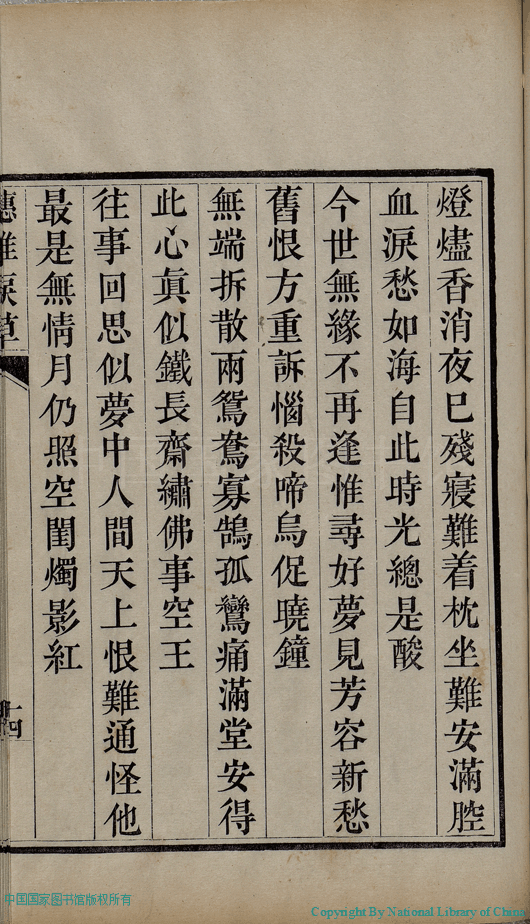 燈燼香消夜已殘寢難着枕坐難安滿腔
血淚愁如海自此時光總是酸
今世無緣不再逢惟尋好夢見芳容新愁
舊恨方重訴惱殺啼烏促曉鐘
無端拆散兩鴛鴦寡鵠孤鸞痛滿堂安得
此心真似鐵長齋繡佛事空王
往事回思似夢中人間天上恨難通怪他
最是無情月仍照空閨燭影紅
淚草
十四
中国国家图书馆版权所有
Copyright By National Library of China